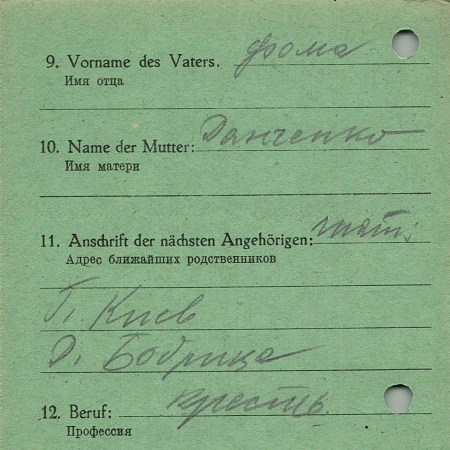 9. Vorname des Vaters. Фома
Имя отца
10. Name der Mutter: Данченко
Имя матери
11. Anschrift der nächsten Angehörigen: мат.
Адрес ближайших родственников
Г. Киев
д. Бобрица
12. Beruf: крестъ.
Профессия